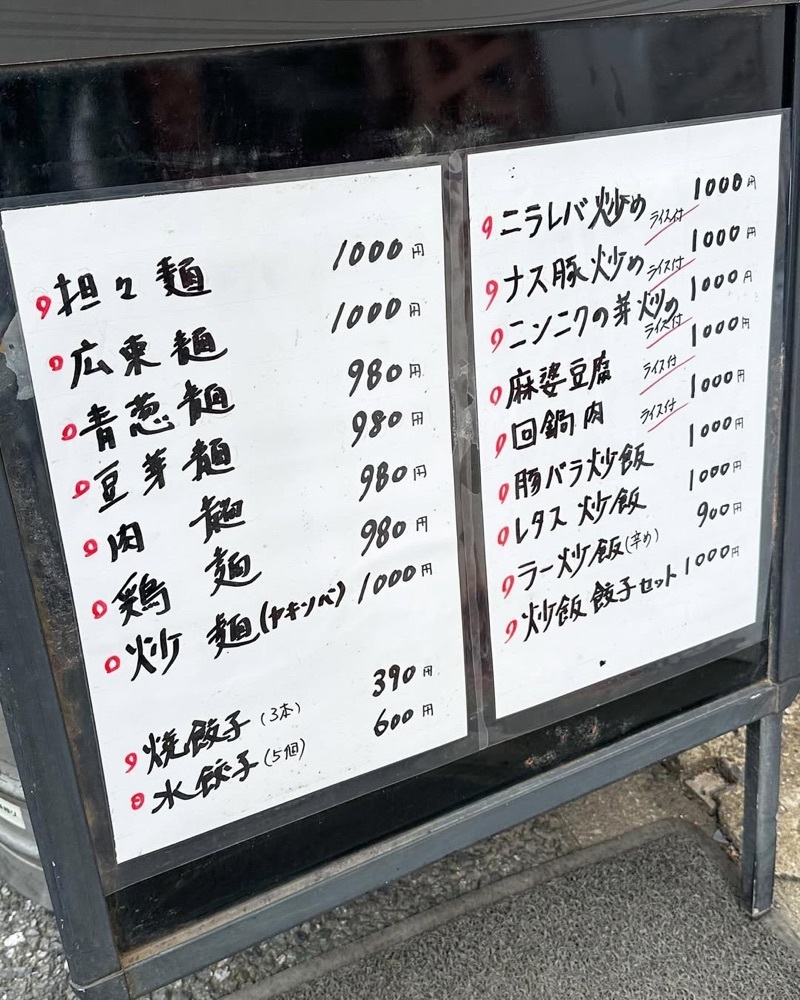 担々麺 1000円
広東麺 1000円
青葱麺 980円
豆芽麺 980円
肉麺 980円
鶏麺 980円
炒麺(ヤキソバ) 1000円
焼餃子(3本) 390円
水餃子(5個) 600円
ニラレバ炒め ライス付 1000円
ナス豚炒め ライス付 1000円
ニンニクの芽炒め ライス付 1000円
麻婆豆腐 ライス付 1000円
回鍋肉 ライス付 1000円
豚バラ炒飯 1000円
レタス炒飯 1000円
ラー炒飯(辛め) 900円
炒飯餃子セット 1000円